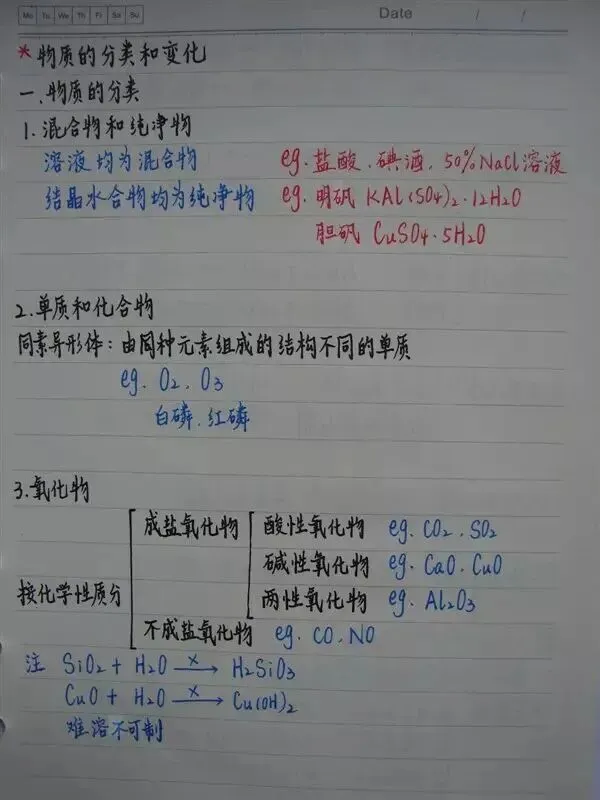 Mo Tu We Th Fr Sa Su
Date / /
*物质的分类和变化
一、物质的分类
1.混合物和纯净物
溶液均为混合物 eg. 盐酸、碘酒、50%NaCl溶液
结晶水合物均为纯净物 eg. 明矾 KAl(SO4)2·12H2O
胆矾 CuSO4·5H2O
2.单质和化合物
同素异形体：由同种元素组成的结构不同的单质
eg. O2、O3
白磷、红磷
3.氧化物
成盐氧化物 酸性氧化物 eg. CO2、SO2
碱性氧化物 eg. CaO、CuO
按化学性质分 两性氧化物 eg. Al2O3
不成盐氧化物 eg. CO、NO
注 SiO2 + H2O —x→ H2SiO3
CuO + H2O —x→ Cu(OH)2
难溶不可制